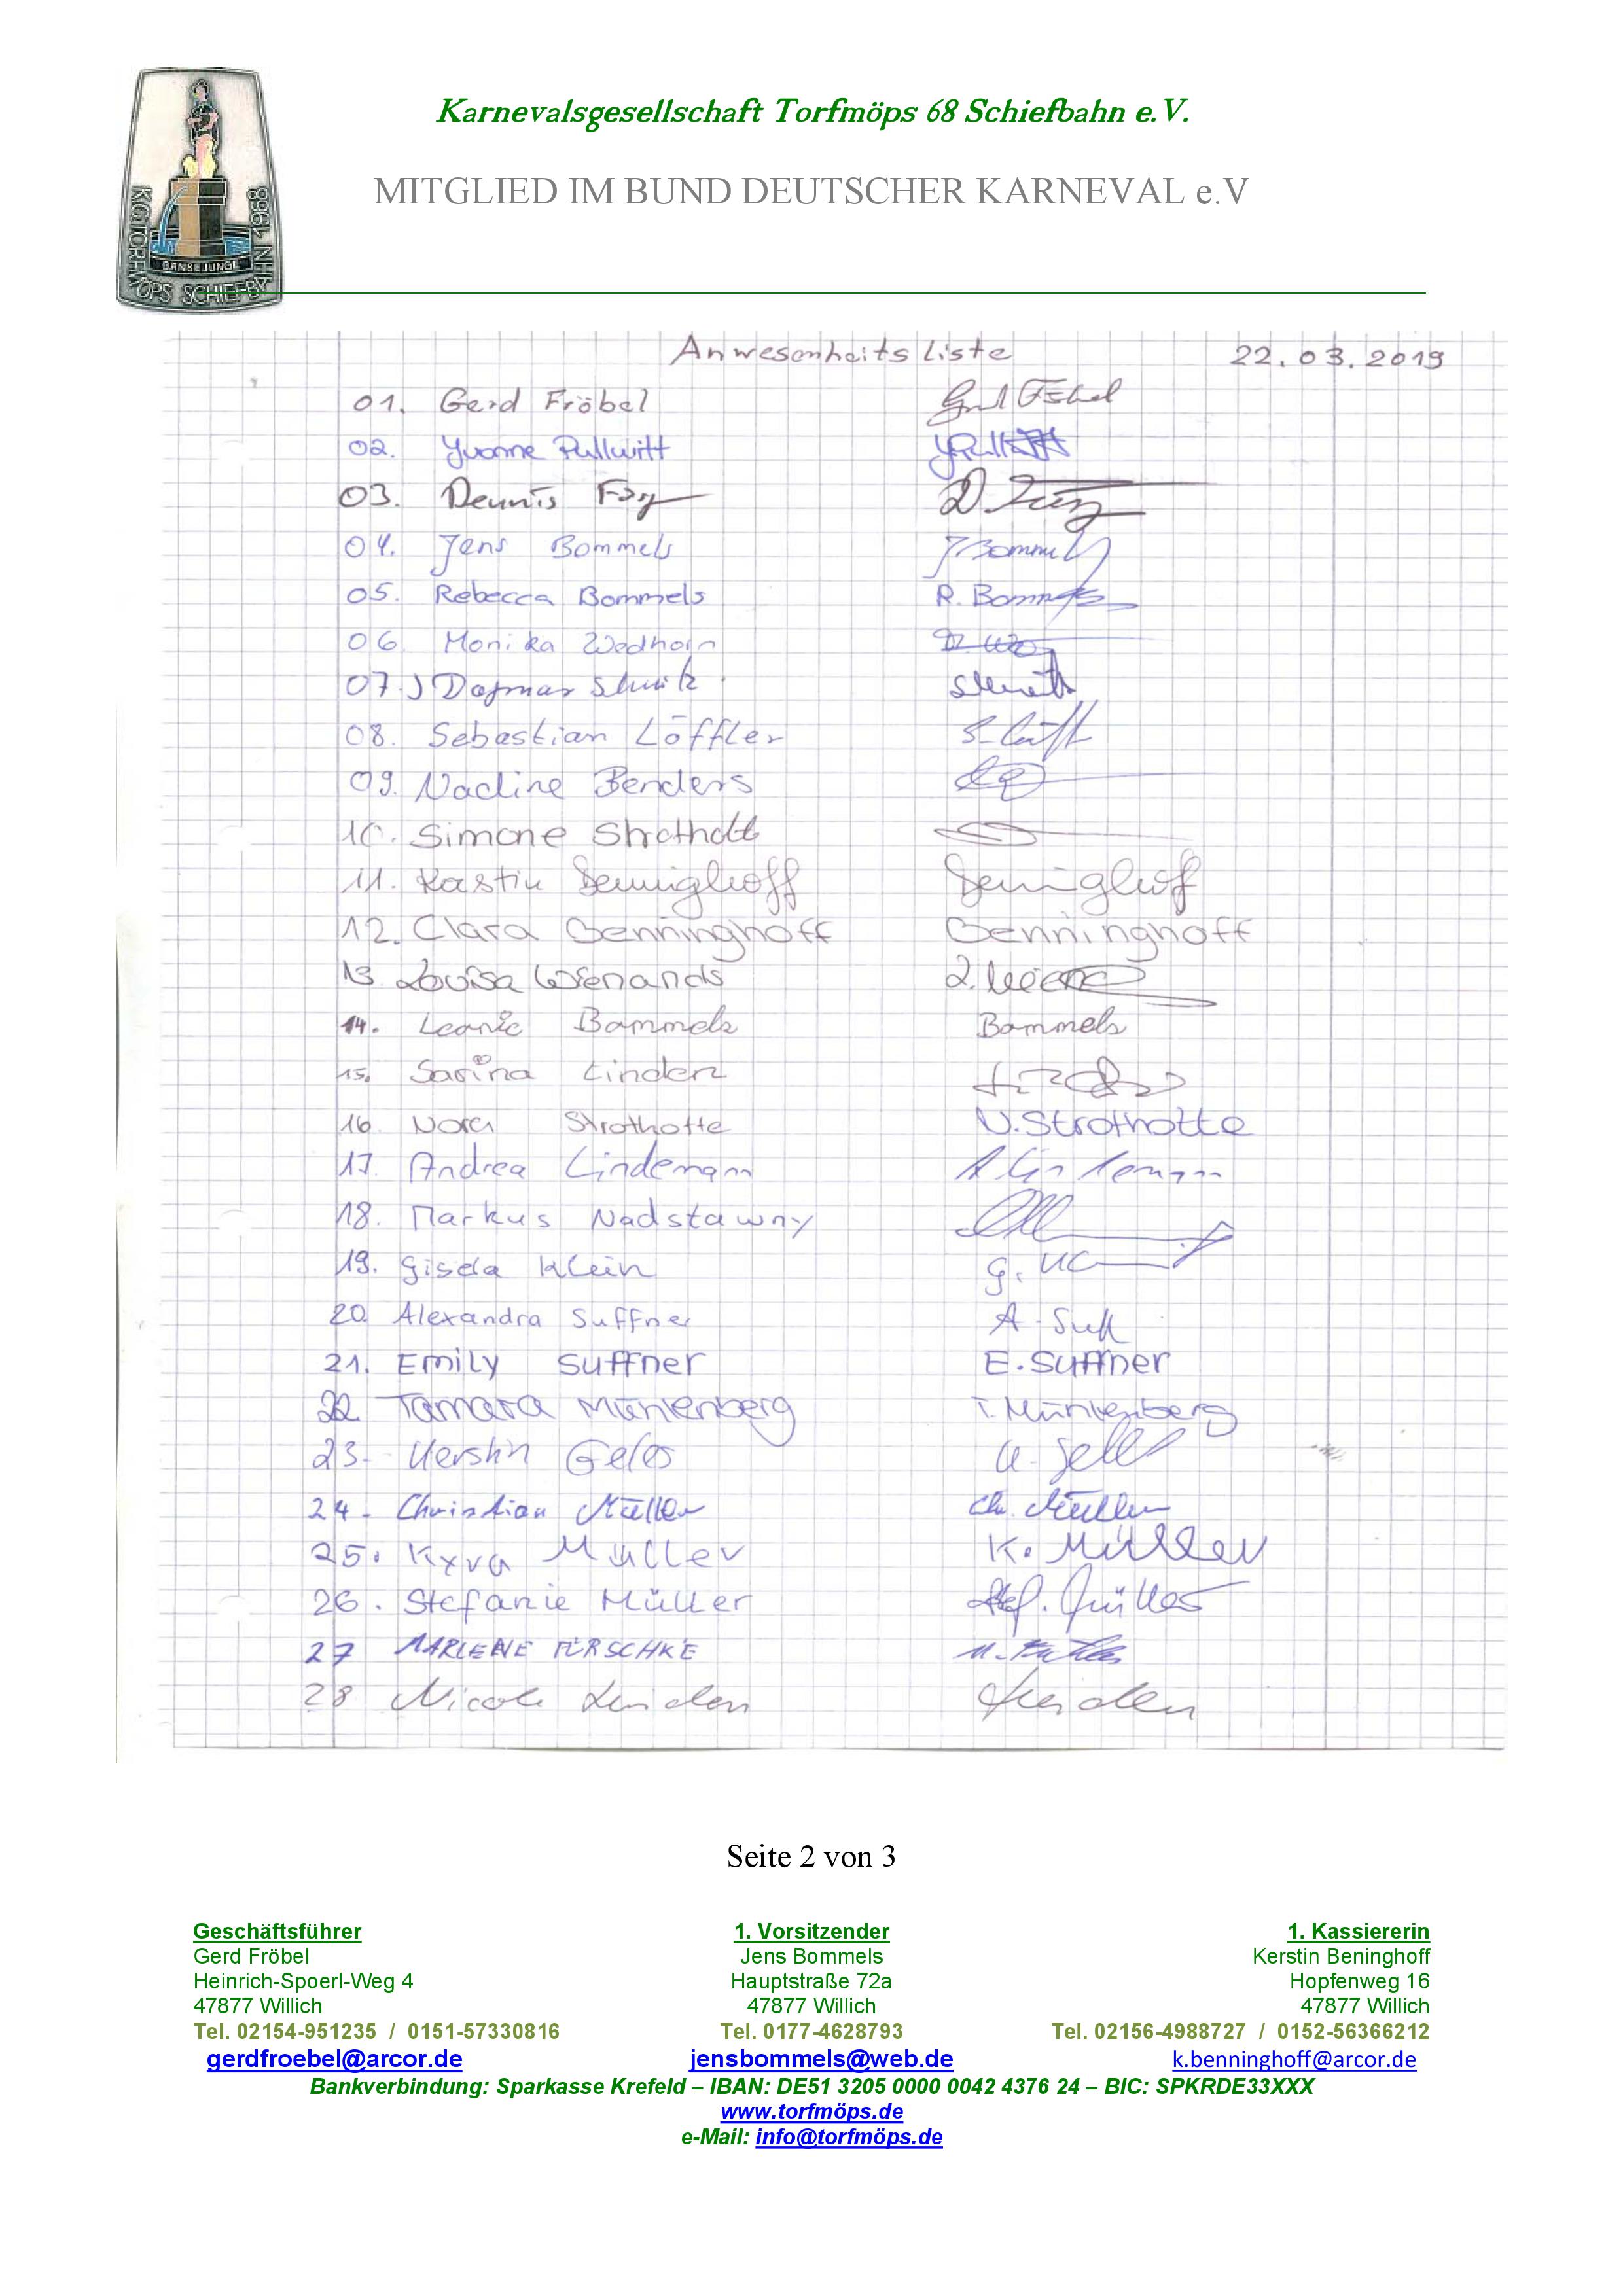 Karnevalsgesellschaft Torfmöps 68 Schiefbahn e.V.
MITGLIED IM BUND DEUTSCHER KARNEVAL e.V
KG TORFMÖPS SCHIEFBAHN 1968
GÄNSEJUNGE
Anwesenheits Liste 22.03.2019
01. Gerd Fröbel
02. Yvonne Pullwitt
03. Dennis
04. Jens Bommels J Bommels
05. Rebecca Bommels R. Bommels
06. Monika Wedhorn
07.) Dagmar Schmitz
08. Sebastian Löffler
09. Nadine Benders
10. Simone Strothott
11. Kerstin Benninghoff Benninghoff
12. Clara Benninghoff Benninghoff
13. Louisa Wienands
14. Leonie Bommels Bommels
15. Sarina Linden
16. Nora Strothotte N. Strothotte
17. Andrea Lindemann A Lindemann
18. Markus Nadstawny
19. Gisela Klein
20. Alexandra Suffner A. Suff
21. Emily Suffner E. Suffner
22. Tamara Mühlenberg T. Mühlenberg
23. Kerstin
24. Christian Müller Ch. Müller
25. Kyra Müller K. Müller
26. Stefanie Müller Stef. Müller
27 MARLENE
28 Nicole Linden Linden
Seite 2 von 3
Geschäftsführer 1. Vorsitzender 1. Kassiererin
Gerd Fröbel Jens Bommels Kerstin Beninghoff
Heinrich-Spoerl-Weg 4 Hauptstraße 72a Hopfenweg 16
47877 Willich 47877 Willich 47877 Willich
Tel. 02154-951235 / 0151-57330816 Tel. 0177-4628793 Tel. 02156-4988727 / 0152-56366212
gerdfroebel@arcor.de jensbommels@web.de k.benninghoff@arcor.de
Bankverbindung: Sparkasse Krefeld – IBAN: DE51 3205 0000 0042 4376 24 – BIC: SPKRDE33XXX
www.torfmöps.de
e-Mail: info@torfmöps.de